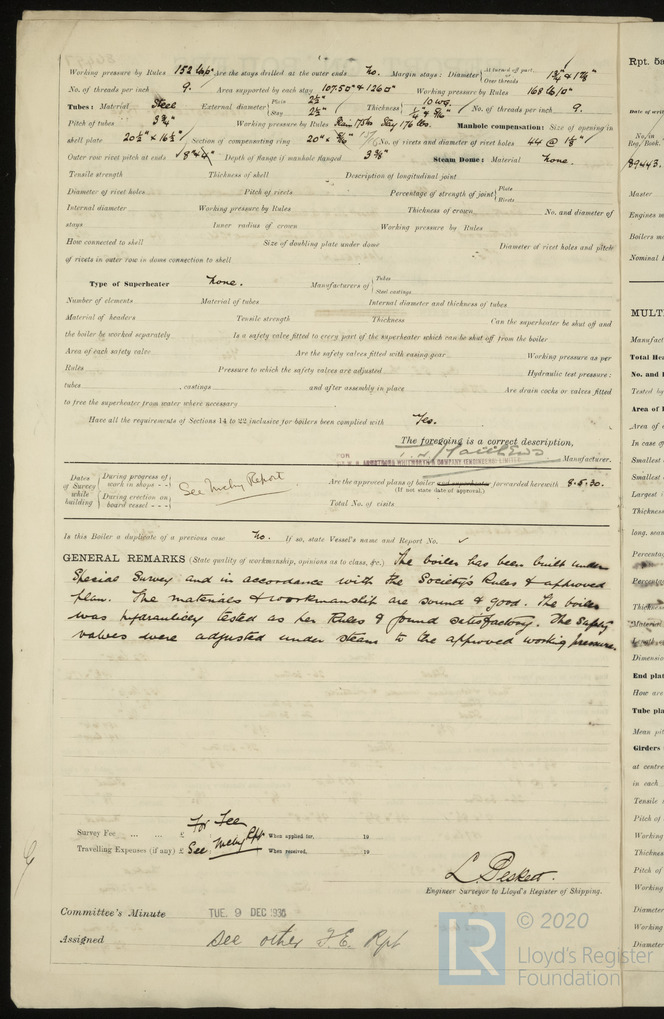 Working pressure by Rules 152 lbs/□" Are the stays drilled at the outer ends No. Margin stays: Diameter { At turned off part, or Over threads 1 7/8"
No. of threads per inch 9. Area supported by each stay 107.50" & 126□" Working pressure by Rules 168 lbs/□"
Tubes: Material Steel External diameter { Plain 2½" Stay 2½" Thickness { 10 WG. ¼" & 5/16" No. of threads per inch 9.
Pitch of tubes 3¾" Working pressure by Rules Stay 176 lbs. Manhole compensation: Size of opening in
shell plate 20½" x 16½" Section of compensating ring No. of rivets and diameter of rivet holes 44 @ 1⅛"
Outer row rivet pitch at ends Depth of flange if manhole flanged 3⅜" Steam Dome: Material None.
Tensile strength Thickness of shell Description of longitudinal joint
Diameter of rivet holes Pitch of rivets Percentage of strength of joint { Plate Rivets
Internal diameter Working pressure by Rules Thickness of crown No. and diameter of
stays Inner radius of crown Working pressure by Rules
How connected to shell Size of doubling plate under dome Diameter of rivet holes and pitch
of rivets in outer row in dome connection to shell
Type of Superheater None. Manufacturers of { Tubes Steel castings
Number of elements Material of tubes Internal diameter and thickness of tubes
Material of headers Tensile strength Thickness Can the superheater be shut off and
the boiler be worked separately Is a safety valve fitted to every part of the superheater which can be shut off from the boiler
Area of each safety valve Are the safety valves fitted with easing gear Working pressure as per
Rules Pressure to which the safety valves are adjusted Hydraulic test pressure:
tubes , castings and after assembly in place Are drain cocks or valves fitted
to free the superheater from water where necessary
Have all the requirements of Sections 14 to 22 inclusive for boilers been complied with Yes.
The foregoing is a correct description,
FOR Matthews Manufacturer.
Dates of Survey while building { During progress of work in shops - - During erection on board vessel - - - } See Mchy Report
Are the approved plans of boiler and superheater forwarded herewith 8.5.30.
(If not state date of approval.)
Total No. of visits
Is this Boiler a duplicate of a previous case No. If so, state Vessel's name and Report No. ✓
GENERAL REMARKS (State quality of workmanship, opinions as to class, &c.) The boiler has been built under
Special Survey and in accordance with the Society's Rules & approved
plan. The materials & workmanship are sound & good. The boiler
was hydraulically tested as per Rules & found satisfactory. The safety
valves were adjusted under steam to the approved working pressure.
Survey Fee ... ... £ For Fee When applied for, 19
Travelling Expenses (if any) £ See Mchy Rpt When received, 19
L. Peskett.
Engineer Surveyor to Lloyd's Register of Shipping.
Committee's Minute TUE. 9 DEC 1930
Assigned See other F.E. Rpt
LR © 2020
Lloyd's Register
Foundation
Rpt. 5a
Date of
No. in
Reg. Book.
89443.
Master
Engines
Boilers
Nominal
MULTI
Total He
No. and
Tested by
Area of
Area of
In case of
Smallest
Smallest
Largest
Thickness
long. seam
Percentage
Percentage
Thickness
Material
Dimension
End plat
How are
Tube pla
Mean pit
Girders
at centre
in each
Tensile
Pitch of
Working
Thickness
Pitch of
Working
Diameter
Working
Diameter
Diameter